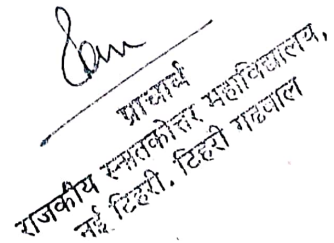 प्राचार्य
राजकीय स्नातकोत्तर महाविद्यालय,
नई टिहरी. टिहरी गढवाल